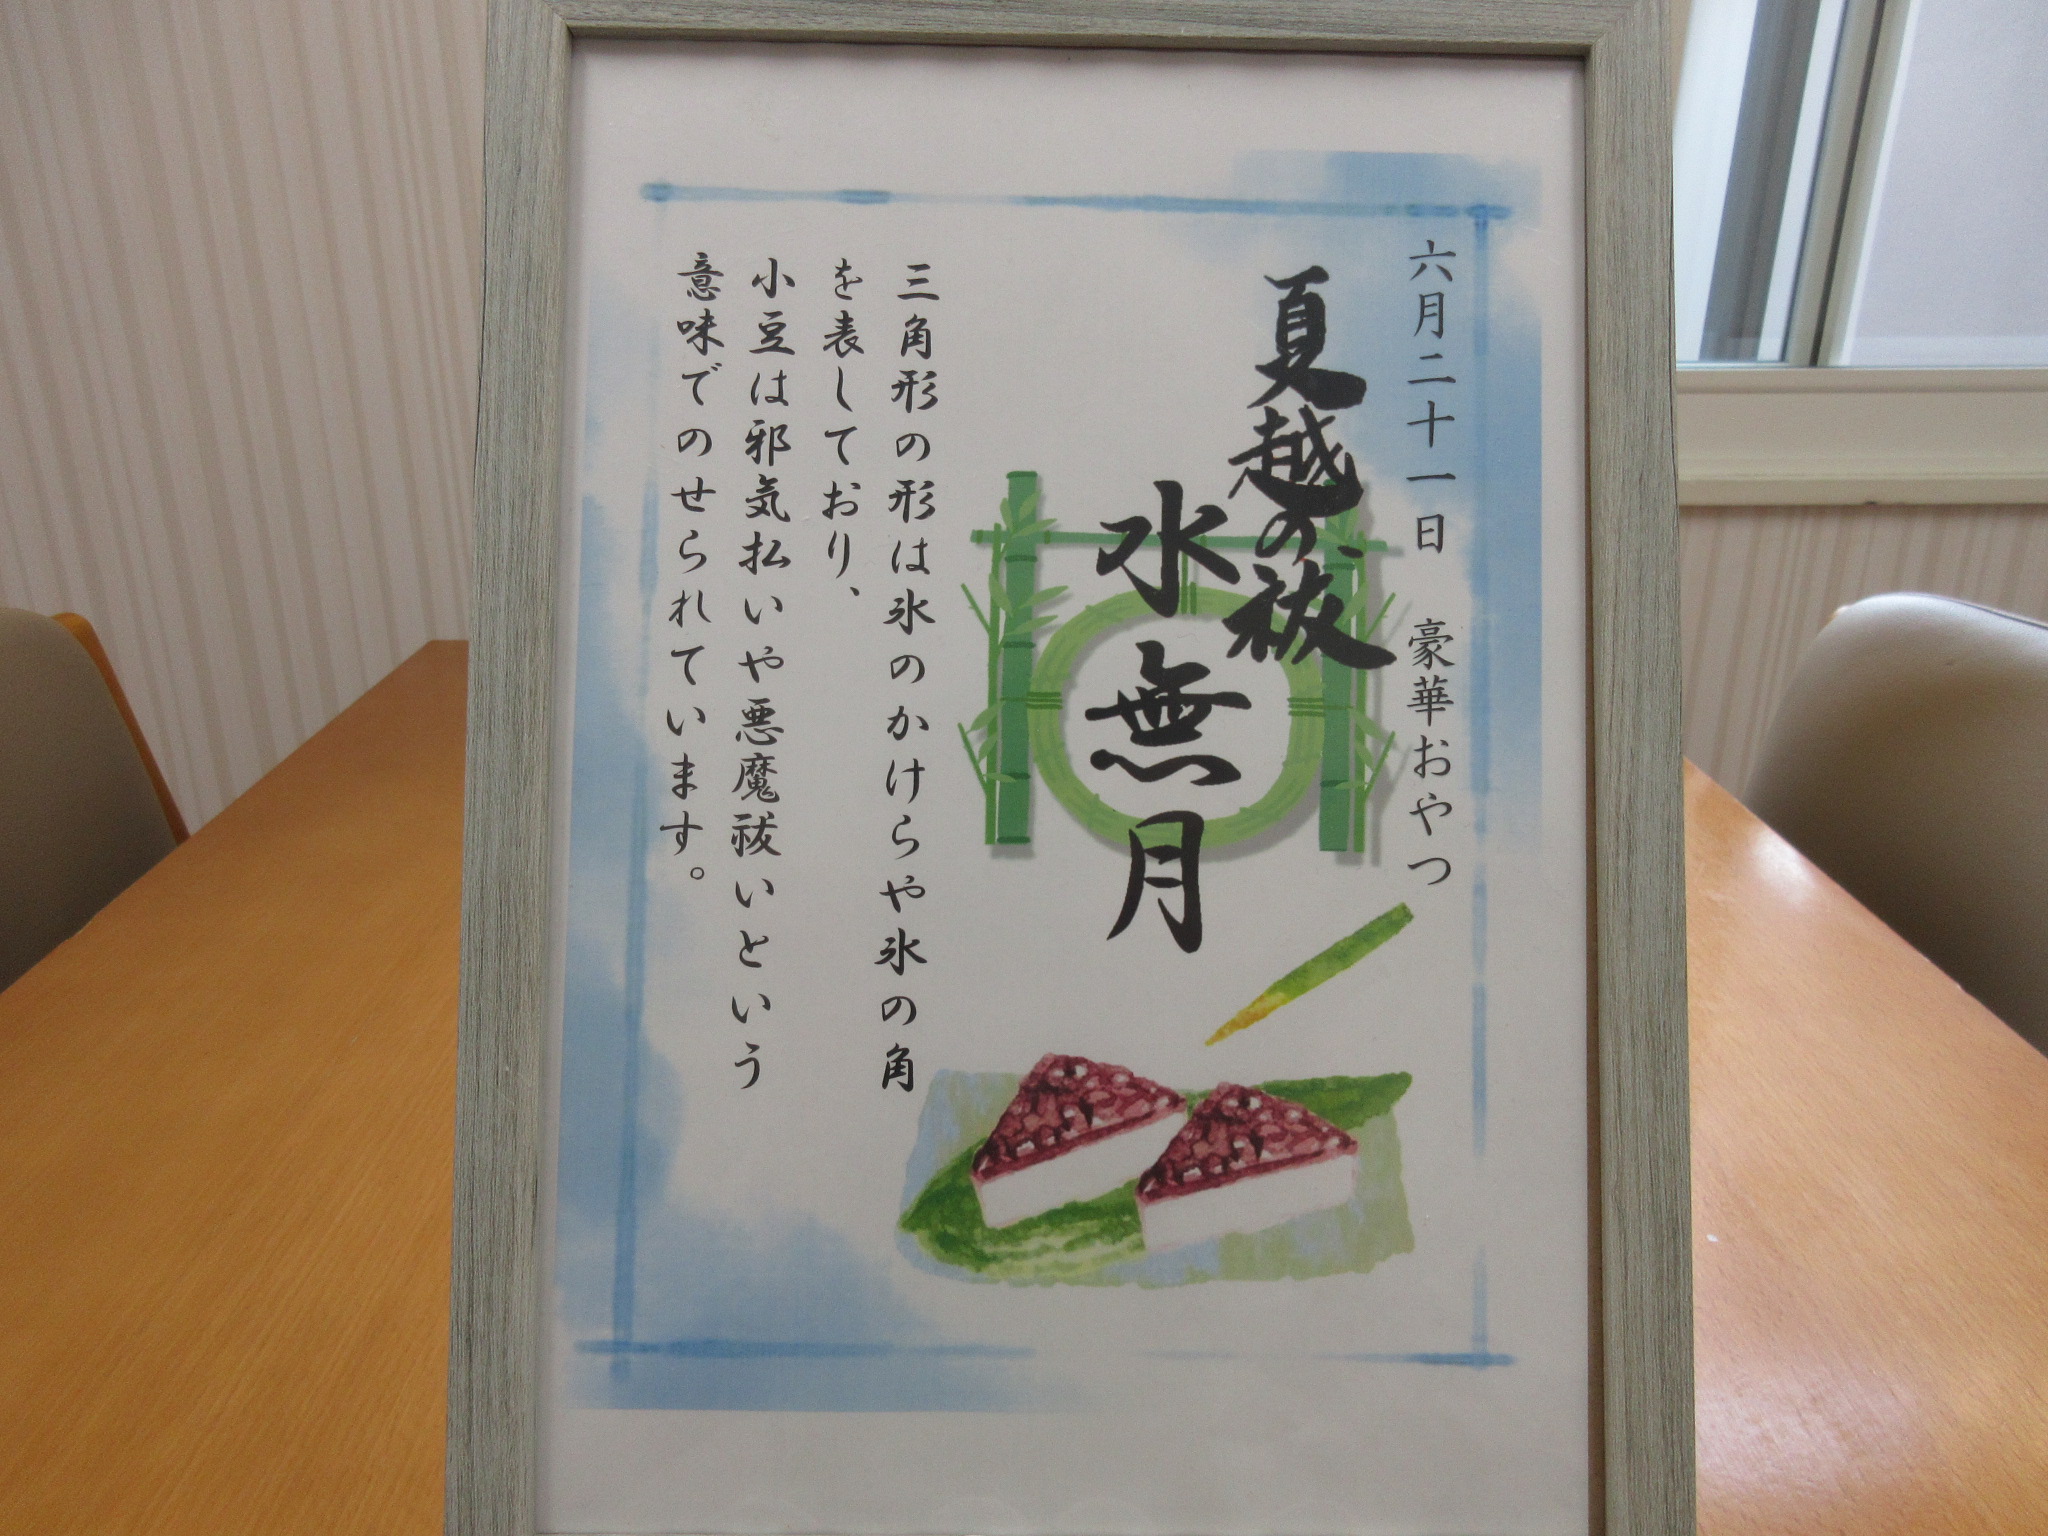 六月二十一日　豪華おやつ
夏越の祓
水無月
三角形の形は氷のかけらや氷の角
を表しており、
小豆は邪気払いや悪魔祓いという
意味でのせられています。